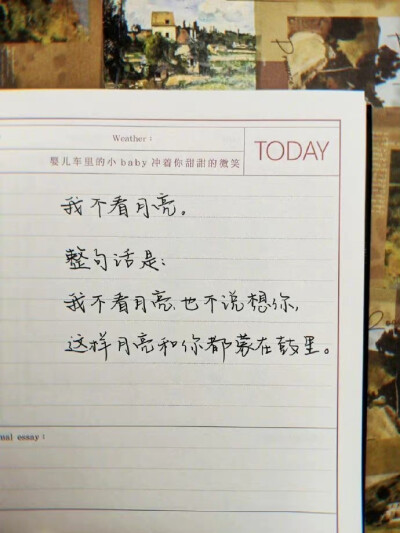 Weather：
婴儿车里的小baby冲着你甜甜的微笑
TODAY
我不看月亮。
整句话是：
我不看月亮，也不说想你，
这样月亮和你都蒙在鼓里。
ual essay：